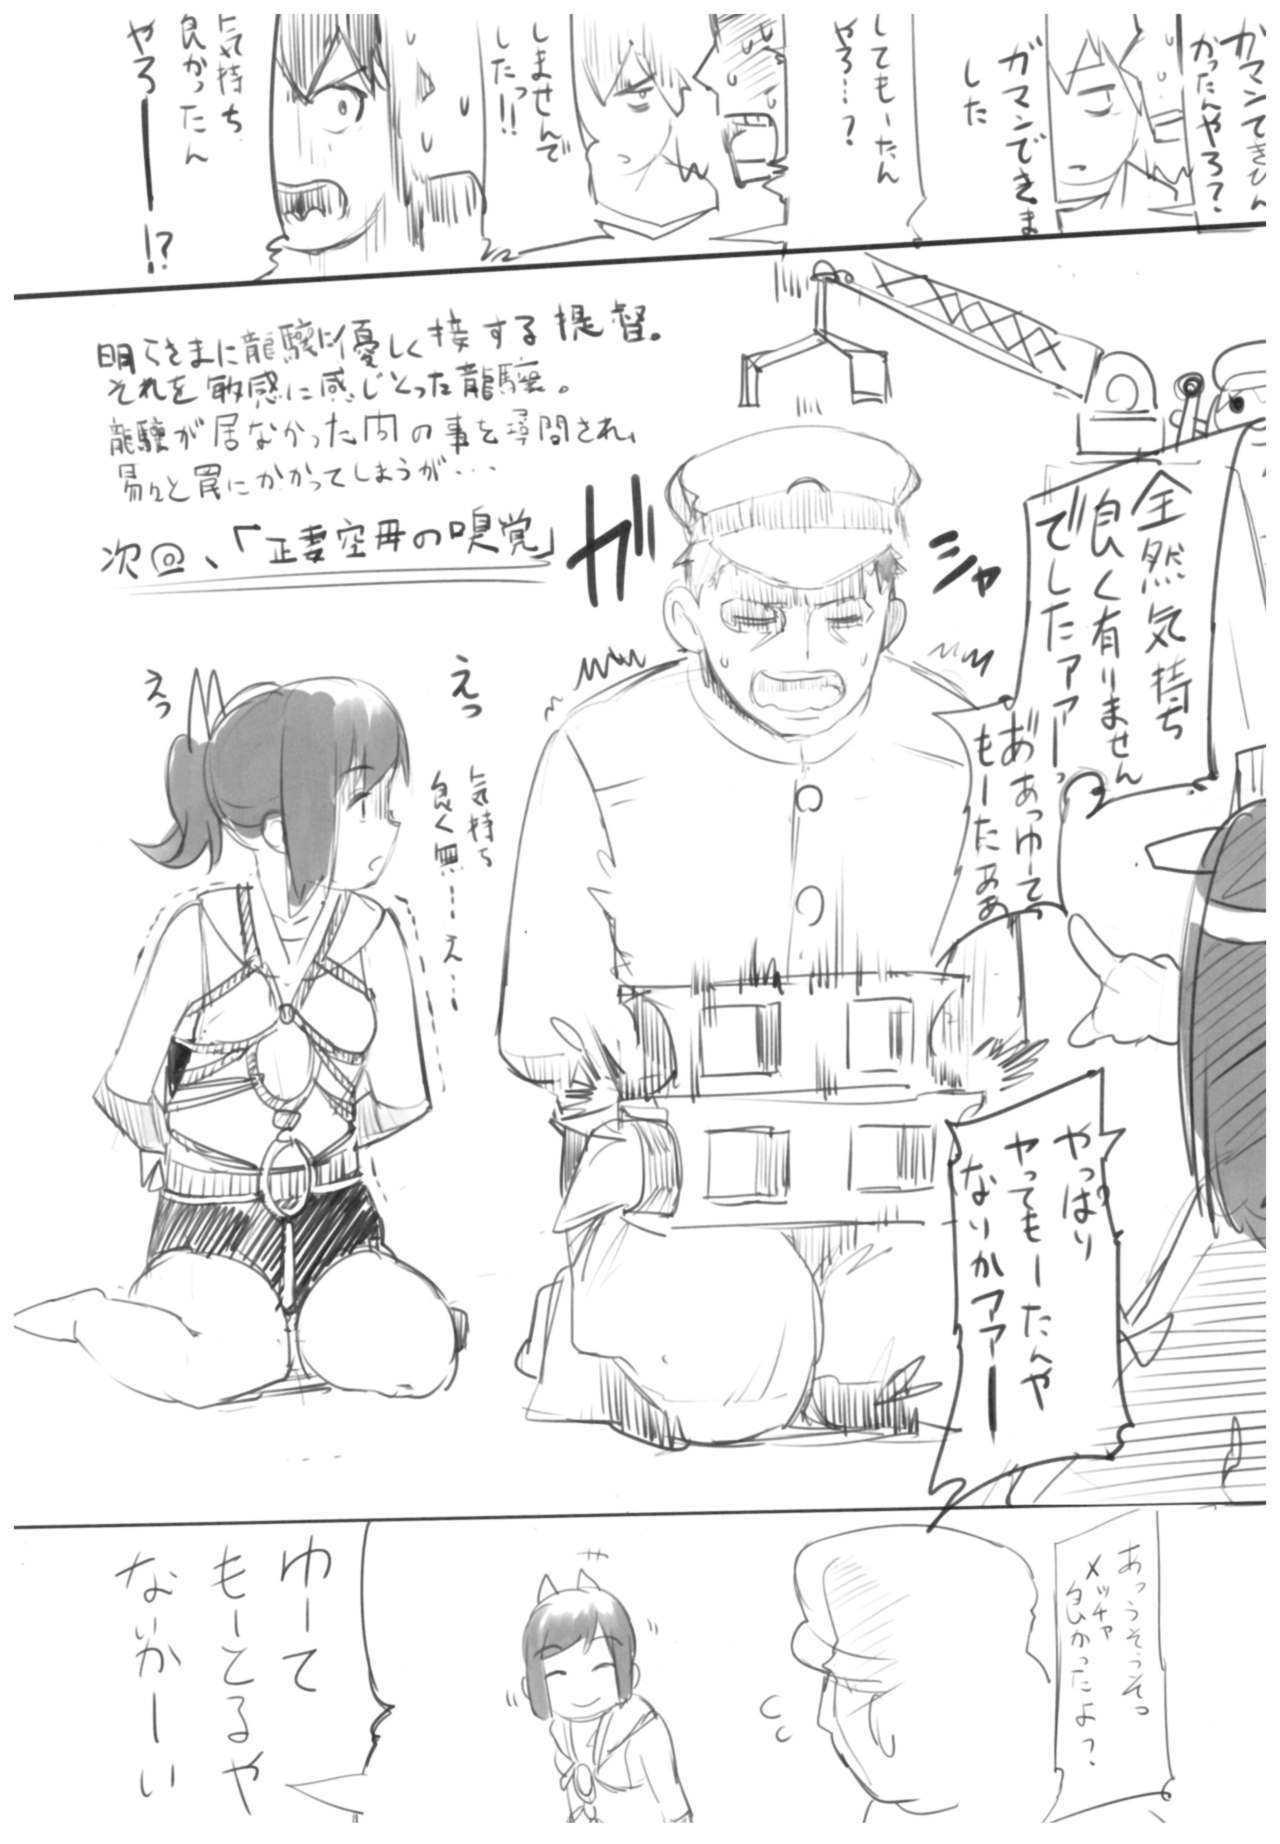 ガマンできひん
かったんやろ?
ガマンできま
した
してもーたん
やろ…?
しませんで
したっ!!
気持ち
良かったん
やろーー!?
明らさまに龍驤に優しく接する提督。
それを敏感に感じとった龍驤。
龍驤が居なかった間の事を尋問され、
易々と罠にかかってしまうが・・・
次回、「正妻空母の嗅覚」
ガシャ
全然気持ち
良く有りません
でしたァァーっ
あ゛あっゆーて
もーたぁぁ
えっ
えっ
気持ち
良く無…え…
やっぱり
ヤってもーたんや
ないかァァー
あっうそうそっ
メッチャ
良かったよ?
ゆーて
もーとるや
ないかーい